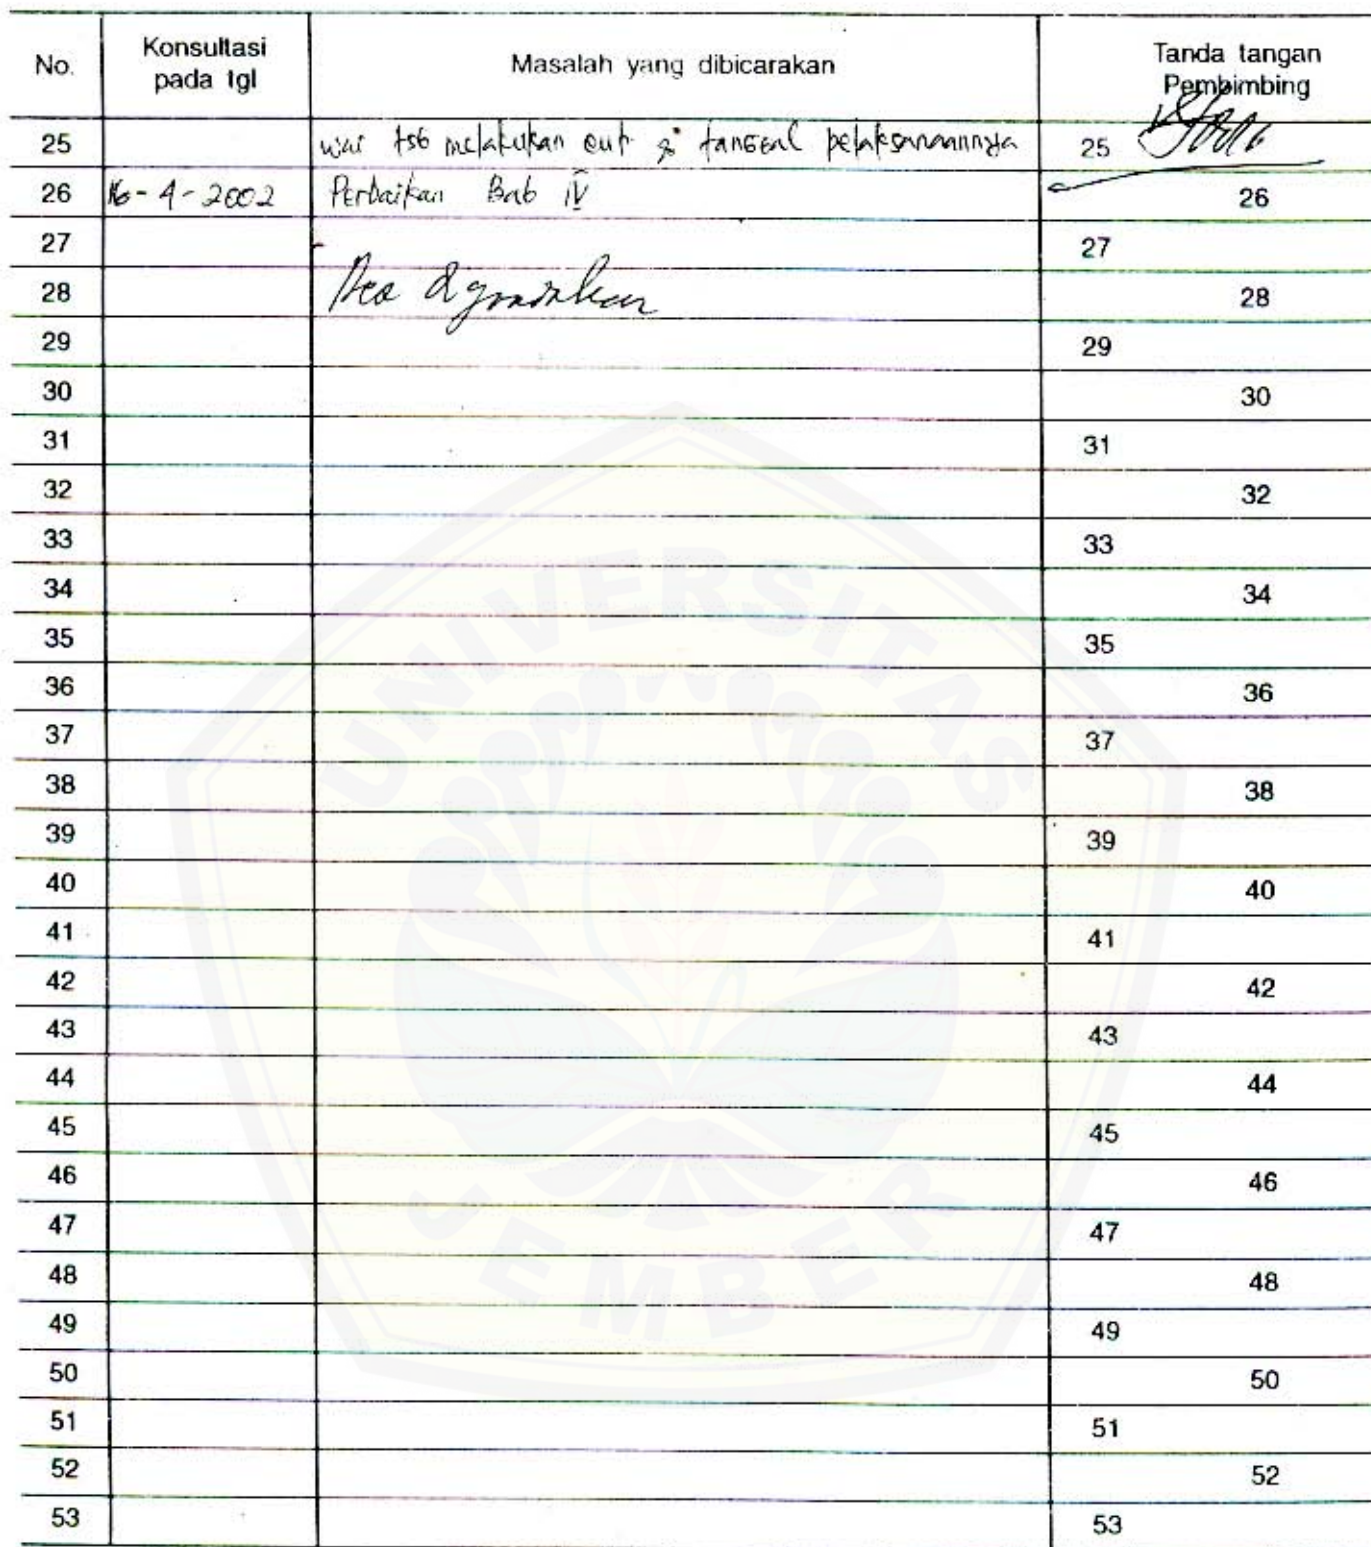 No. Konsultasi pada tgl Masalah yang dibicarakan Tanda tangan Pembimbing
25 wai tsb melakukan cuti tanggal pelaksanaannya 25
26 16-4-2002 Perbaikan Bab IV 26
27 27
28 Acc 28
29 29
30 30
31 31
32 32
33 33
34 34
35 35
36 36
37 37
38 38
39 39
40 40
41 41
42 42
43 43
44 44
45 45
46 46
47 47
48 48
49 49
50 50
51 51
52 52
53 53
UNIVERSITAS
JEMBER